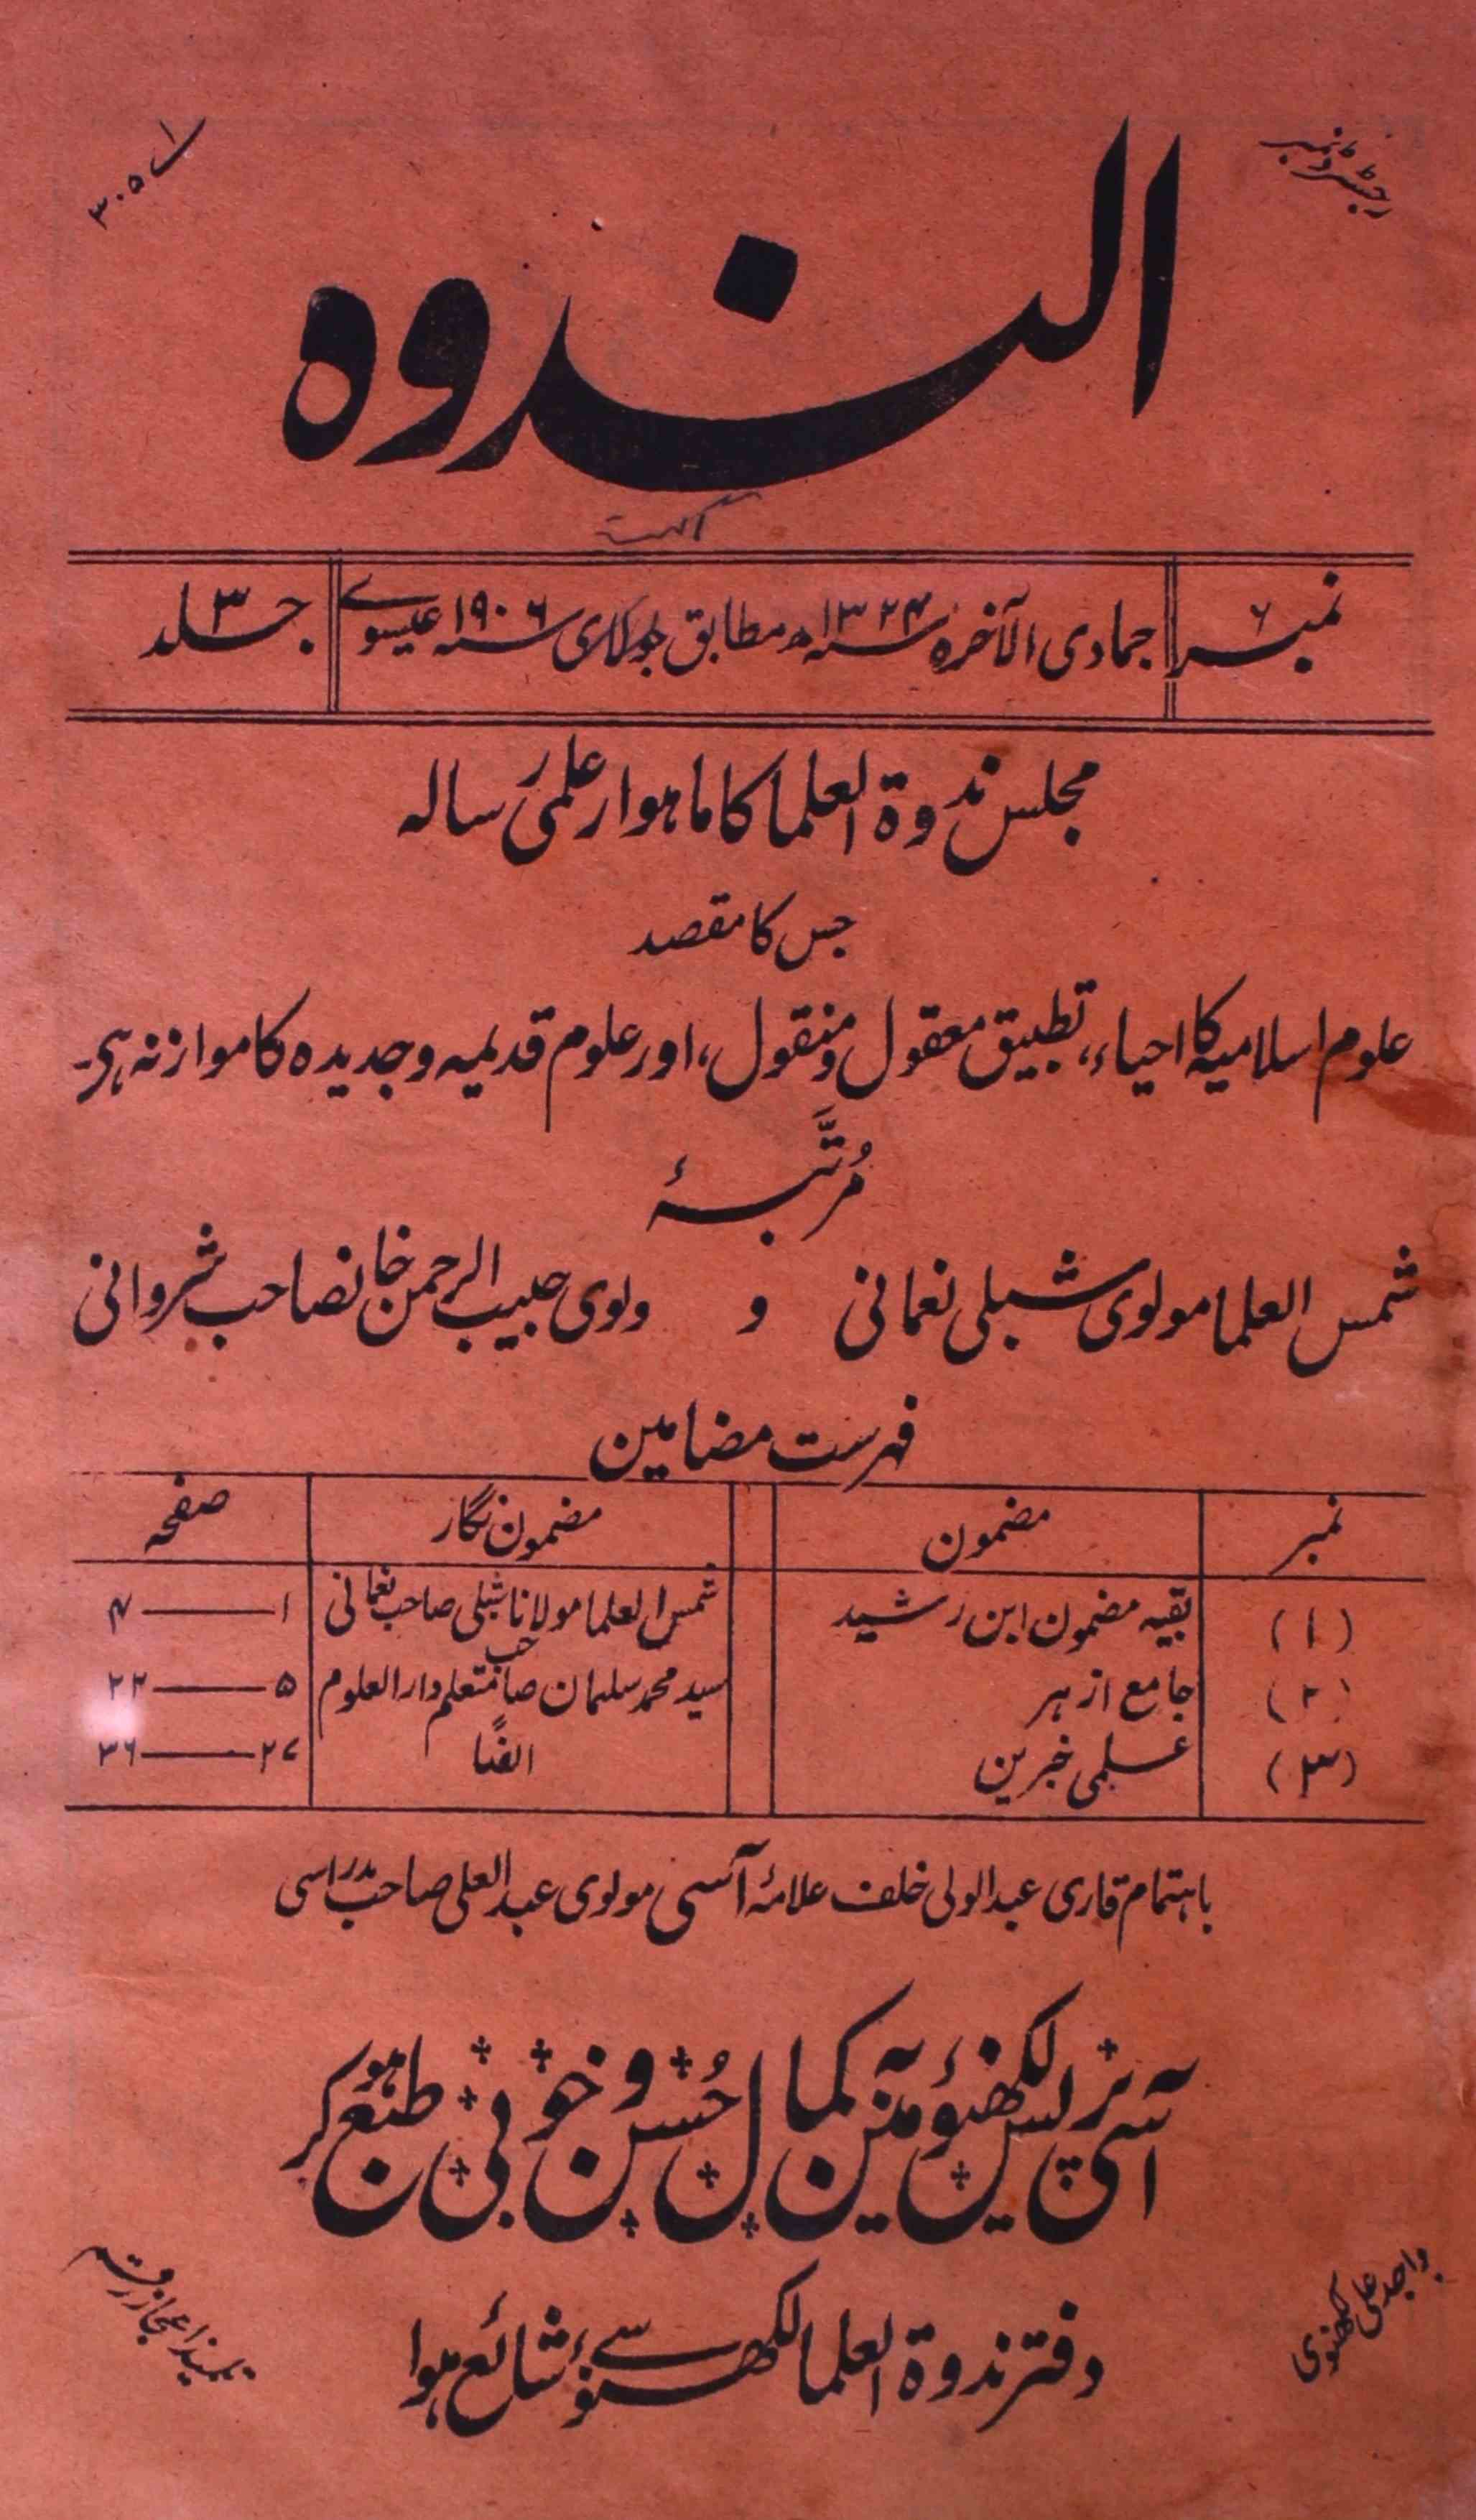 رجسٹرڈ نمبر
ل ۳۰۵
الندوہ
نمبر ۶ جمادی الآخرہ سنہ ۱۳۲۴ھ مطابق جولائی سنہ ۱۹۰۶ عیسوے جلد ۳
مجلس ندوۃ العلما کا ماہوار علمی رسالہ
جس کا مقصد
علوم اسلامیہ کا احیاء، تطبیق معقول و منقول، اور علوم قدیمیہ و جدیدہ کا موازنہ ہی۔
مُرتَّبۂ
شمس العلما مولوی شبلی نعمانی و ولوی حبیب الرحمن خانصاحب شروانی
فہرست مضامین
نمبر مضمون مضمون نگار صفحہ
(۱) بقیہ مضمون ابن رشید شمس العلما مولانا شبلی صاحب نعمانی ۱ — ۴
(۲) جامع ازہر سید محمد سلیمان صاحب متعلم دار العلوم ۵ — ۲۲
(۳) علمی خبرین ایضًا ۲۷ — ۳۶
باہتمام قاری عبد الولی خلف علامۂ آسی مولوی عبد العلی صاحب مدراسی
آسی پریس لکھنؤ مین کمال حُسن و خوبی طبع ہو کر
دفتر ندوۃ العلما لکھنؤ سے شائع ہوا
واجد علی لکھنوی
تلمیذ اعجاز رقم